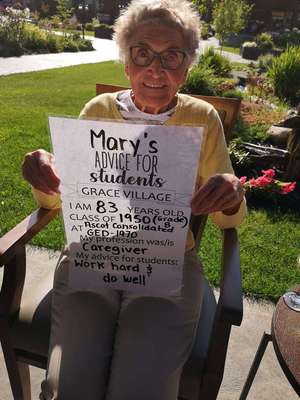 Mary's
ADVICE FOR
students
GRACE VILLAGE
I AM 83 YEARS OLD
CLASS OF 1950 (Grade 8)
AT Ascot Consolidated
GED-1970
My profession was/is
Caregiver
My advice for students:
Work hard &
do well